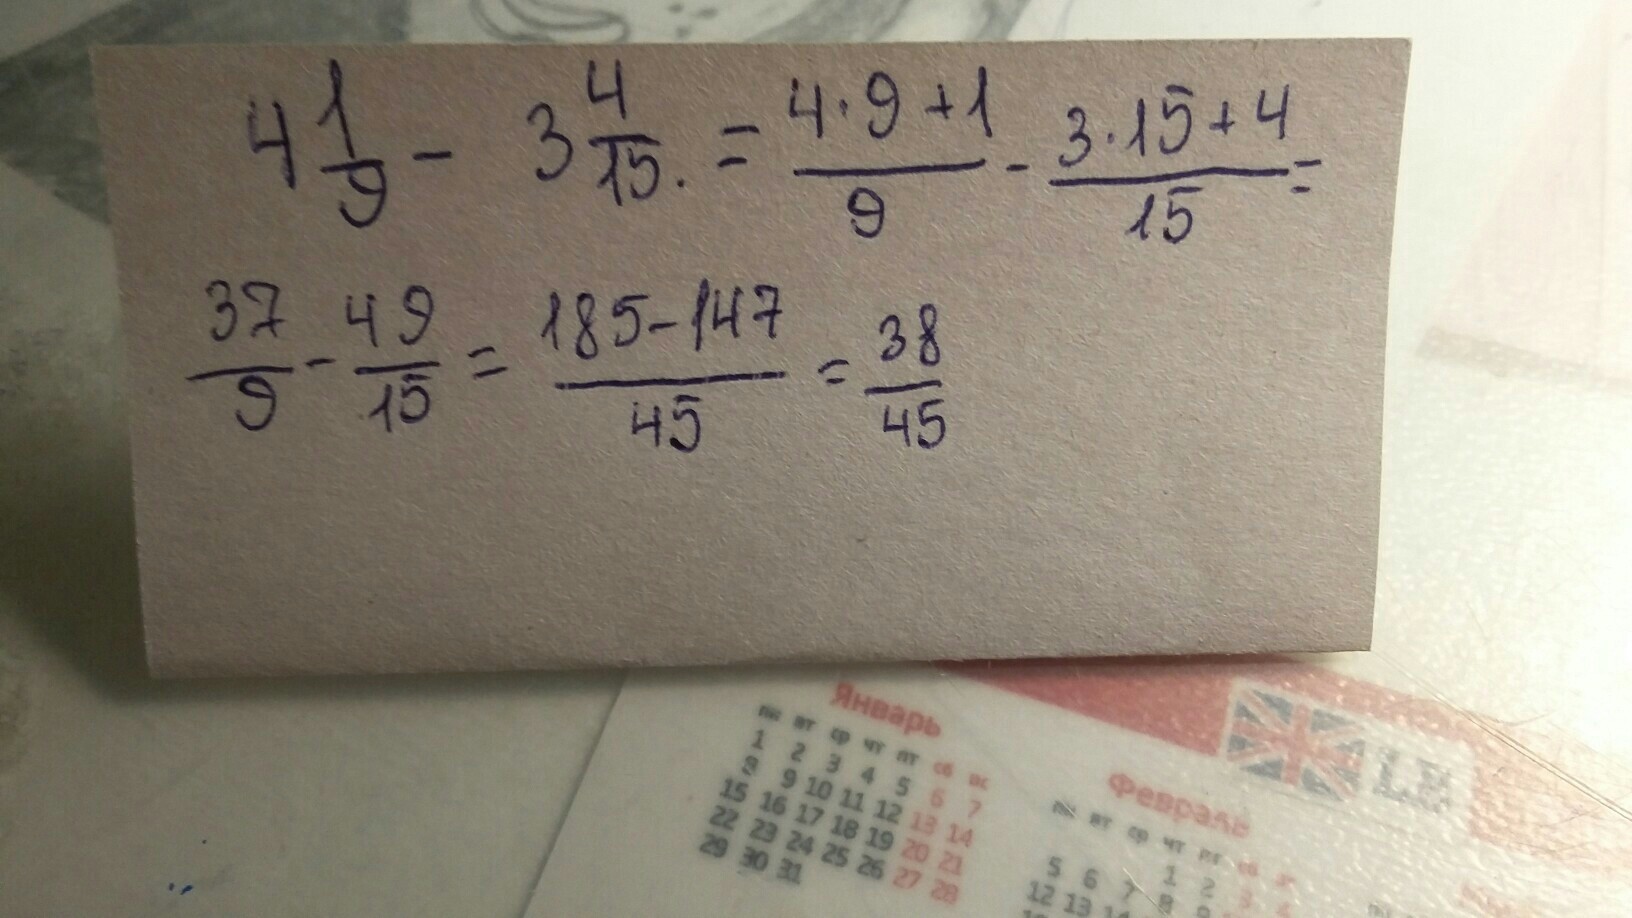 4 1/9 - 3 4/15. = (4·9+1)/9 - (3·15+4)/15 =
37/9 - 49/15 = (185-147)/45 = 38/45
Январь
пн вт ср чт пт сб вс
1 2 3 4 5 6 7
8 9 10 11 12 13 14
15 16 17 18 19 20 21
22 23 24 25 26 27 28
29 30 31
LE
Февраль
пн вт ср чт пт сб вс
1 2 3 4
5 6 7 8 9
12 13 14